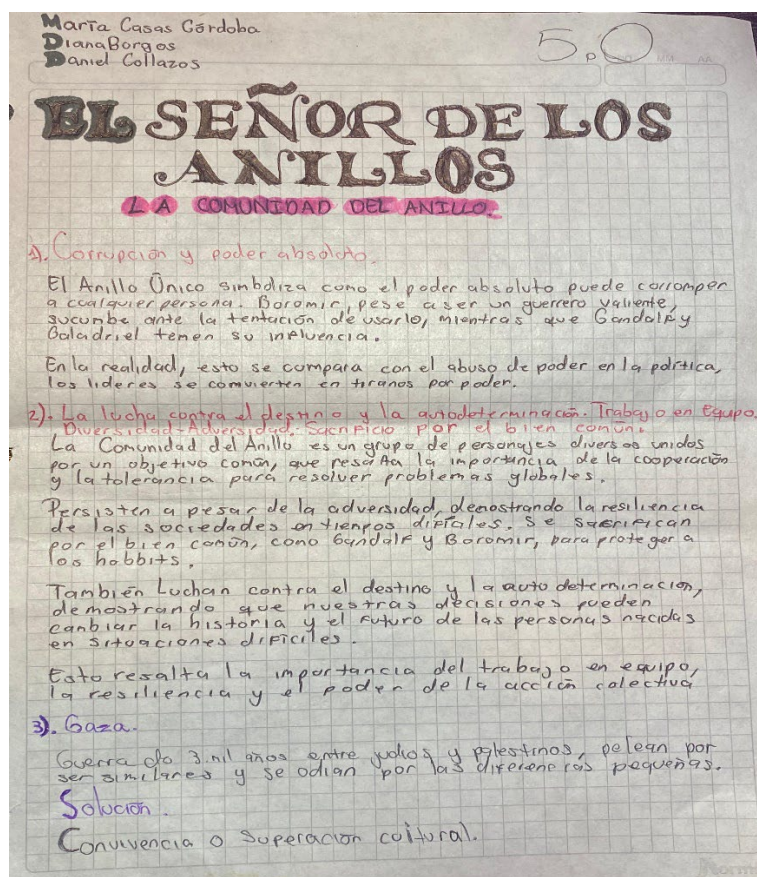 María Casas Córdoba
Diana Borgos
Daniel Collazos
5.0
EL SEÑOR DE LOS
ANILLOS
LA COMUNIDAD DEL ANILLO.
1). Corrupción y poder absoluto.
El Anillo Único simboliza como el poder absoluto puede corromper
a cualquier persona. Boromir, pese a ser un guerrero valiente,
sucumbe ante la tentación de usarlo, mientras que Gandalf y
Galadriel temen su influencia.
En la realidad, esto se compara con el abuso de poder en la política,
los lideres se convierten en tiranos por poder.
2). La lucha contra el destino y la autodeterminación. Trabajo en Equipo.
Diversidad-Adversidad. Sacrificio por el bien común.
La Comunidad del Anillo es un grupo de personajes diversos unidos
por un objetivo común, que resalta la importancia de la cooperación
y la tolerancia para resolver problemas globales.
Persisten a pesar de la adversidad, demostrando la resiliencia
de las sociedades en tienpos difíciles. Se sacrifican
por el bien común, como Gandalf y Boromir, para proteger a
los hobbits.
También Luchan contra el destino y la auto determinación,
demostrando que nuestras decisiones pueden
canbiar la historia y el futuro de las personas nacidas
en situaciones difíciles.
Esto resalta la importancia del trabajo en equipo,
la resiliencia y el poder de la acción colectiva
3). Gaza.
Guerra de 3.mil años entre judíos y palestinos, pelean por
ser similares y se odian por las diferencias pequeñas.
Solución.
Convivencia o Superación cultural.
Norma